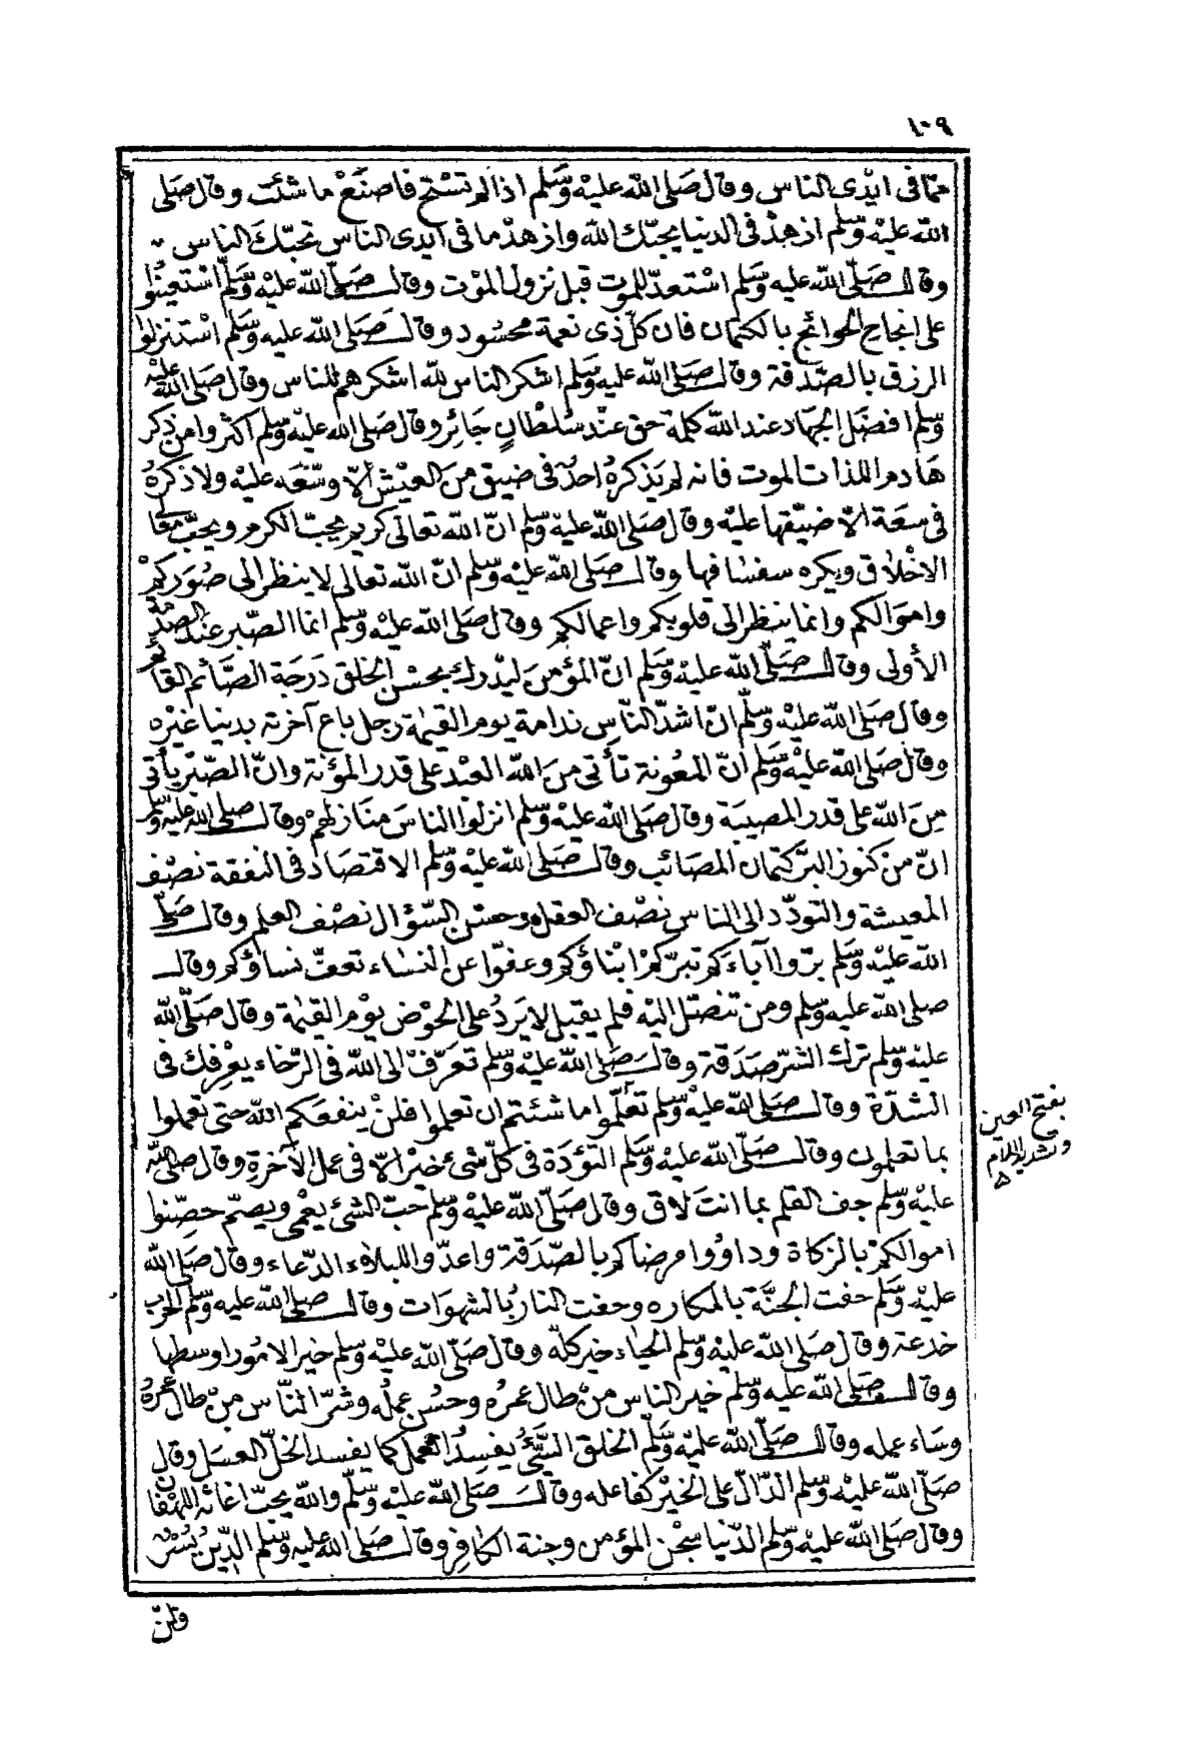 ١٠٩
عمّا فى ايْدى الناس وقال صَلى الله عليْه وسَّلم اذا لم تسْتحِ فاصنَعْ ما شئت وقال صَلى
الله عليْه وسَّلم ازهدْ فى الدنيا يحبّك الله وازهدْ ما فى ايدى الناس تحبّكَ الناس
وقال صَلّى الله عليه وسَلم اسْتعدّ للموت قبل نزول الموْت وقال صَلّى الله عليْه وسَلّم استعينُوا
على انجاح الحوائج بالكتمان فان كلّ ذى نعمة محْسُود وقال صَلى الله عليه وسَلم اسْتنزلوا
الرزق بالصّدقة وقال صَلى الله عليه وسَلم اشكر الناس لله اشكرهم للناس وقال صَلى الله عليْه
وسّلم افضَل الجهاد عند الله كلمة حق عنْد سُلطانٍ جَائِر وقال صَلى الله عليْه وسّلم اكثروا من ذِكر
هَادم اللذات الموت فانه لم يَذكرهُ احدٌ فى ضيق مِنَ العيْش الاّ وسّعَه عليْه ولا ذكرهُ
فى سعَة الاّ ضيّقها عليْه وقال صَلى الله عليْه وسّلم انّ الله تعالى كريم يحبّ الكرم ويحبّ معَا
الاخْلاق ويكره سفسافها وقال صَلى الله عليْه وسّلم انّ الله تعالى لا ينظر الى صُوَركمْ
وامْوَالكم وانما ينظر الى قلوبكم واعمالكم وقال صَلى الله عليْه وسّلم انما الصّبر عند الصدْمة
الأولى وقال صَلّى الله عليْه وسَلم انّ المؤمنَ ليدْرك بحسْن الخلق دَرَجَة الصَّائم القائم
وقال صَلى الله عليْه وسّلم انّ اشدّ النّاسِ ندامة يوم القيٰمة رجل باع آخرته بدنيا غيْره
وقال صَلى الله عليْه وسَلم انّ المعُونة تأتى منَ الله العبْد على قدر المؤنة وانّ الصّبْر يأتى
مِنَ الله على قدر المصيبَة وقال صَلى الله عليْه وسّلم انزلوا الناسَ منَازلهمْ وقال صلى الله عليْه وسّلم
انّ من كنوز البرّ كتمان المصَائب وقال صَلّى الله عليْه وسّلم الاقتصَاد فى النفقة نصْف
المعيشة والتودّد الى الناس نصْف العقل وحسْن السّؤال نصْف العلم وقال صَلى
الله عليْه وسَلم برّوا آباءَكم تبرّكمْ ابْناؤكم وعفوّا عن النسَاء تعفّ نساؤكم وقال
صلى الله عليه وسّلم ومن تنصّل اليْه فلم يقبل لا يَردُ على الحوْض يوْم القيٰمة وقال صَلّى الله
عليْه وسّلم ترك الشرّ صدَقة وقال صَلى الله عليْه وسّلم تعَرّفْ الى الله فى الرّخاء يعْرفِك فى
الشدّة وقال صَلّى الله عليْه وسّلم تعلّموا ما شئتم ان تعلموا فلنْ ينفعَكم الله حتى تعملوا
بما تعلمون وقال صَلّى الله عليْه وسّلم التؤدَة فى كلّ شئ خيْر الاّ فى عمل الآخرةِ وقال صَلى الله
عليْه وسّلم جف القلم بما انتَ لاق وقال صَلّى الله عليْه وسّلم حبّ الشئ يعْمى ويصمّ حصِّنوا
اموالكمْ بالزكاة وداوُوا مرضاكم بالصّدَقة واعدّوا للبلاءِ الدّعاء وقال صَلى الله
عليْه وسَّلم حفت الجنَّة بالمكاره وحفت النارُ بالشهوَات وقال صلى الله عليه وسّلم الحرب
خدعة وقال صَلى الله عليْه وسّلم الحياء خير كلّه وقال صَلّى الله عليْه وسّلم خير الامُور اوسطها
وقال صَلّى الله عليه وسّلم خير الناس منْ طال عمرُه وحسُن عملُه وشرّ النّاس منْ طال عمرُهُ
وسَاء عمله وقال صَلّى الله عليْه وسَلّم الخلق السَّيّئُ يفسِدُ العمل كما يفسد الخلّ العسَل وقال
صَلّى الله عليْه وسّلم الدّالّ على الخيْر كفاعله وقال صَلى الله عليْه وسّلم والله يحبّ اغاثة اللهْفان
وقال صَلى الله عليْه وسّلم الدّنيا سجْن المؤمن وجنة الكافِر وقال صَلى الله عليه وسّلم الدّيْن يُسْر
ولنْ
بفتح العين
وتشديد اللام